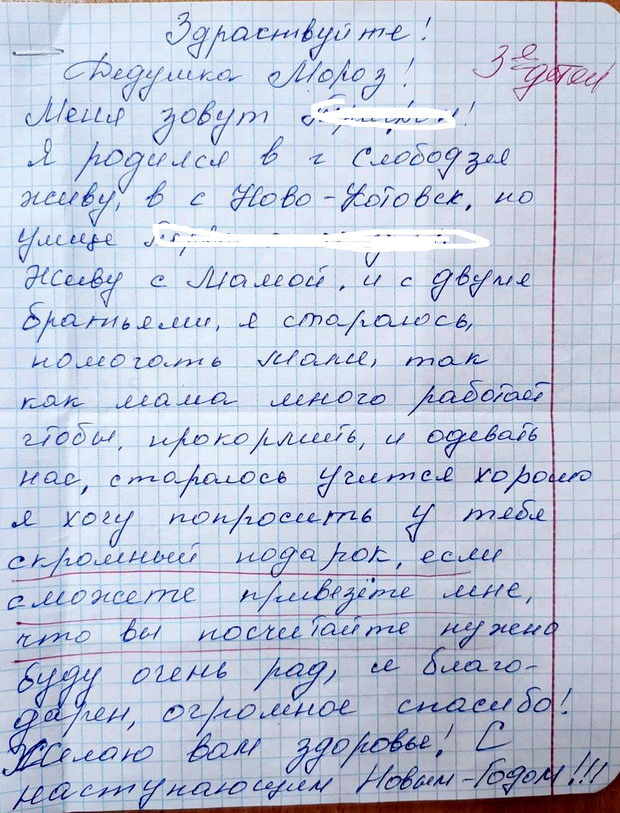 Здраствуйте!
Дедушка Мороз!
3е детей
Меня зовут
Я родился в г Слободзея
живу, в с Ново-Котовск, по
улице
Живу с Мамой, и с двумя
братьями, я стараюсь,
помогать маме, так
как мама много работает
чтобы, прокормить, и одевать
нас, стараюсь учится хорошо
я хочу попросить у тебя
скромный подарок, если
сможете привезёте мне,
что вы посчитайте нужено
буду очень рад, и благо-
дарен, огромное спасибо!
Желаю вам здоровье! С
наступающим Новым-Годом!!!